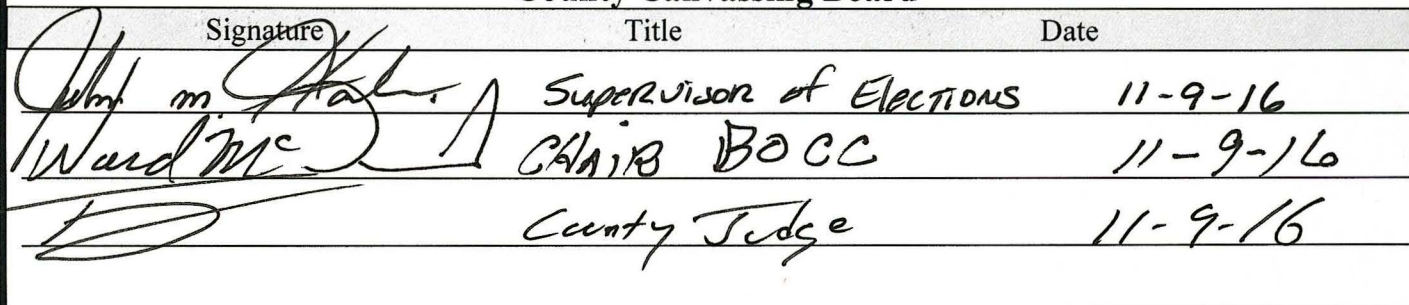 County Canvassing Board
Signature Title Date
John m. Supervisor of Elections 11-9-16
Ward Mc CHAIR BOCC 11-9-16
County Judge 11-9-16